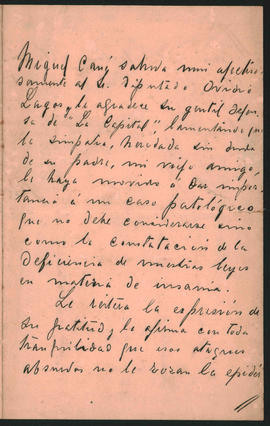 Miguel Cané saluda muy afectuo-
samente al Sr. Diputado Ovidio
Lagos y le agradece su gentil defen-
sa de "La Capital", lamentando que
la simpatía, heredada sin duda
de su padre, mi viejo amigo,
le haya movido á dar impor-
tancia á un caso patológico
que no debe considerarse sino
como la constatación de la
deficiencia de nuestras leyes
en materia de insania.
Le reitera la espresión de
su gratitud y le afirma con toda
tranquilidad que esos ataques
absurdos no le rozan la epider